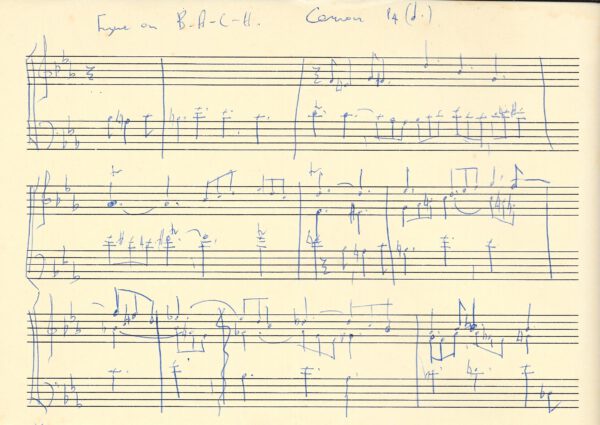 Fugue on B-A-C-H. Canon